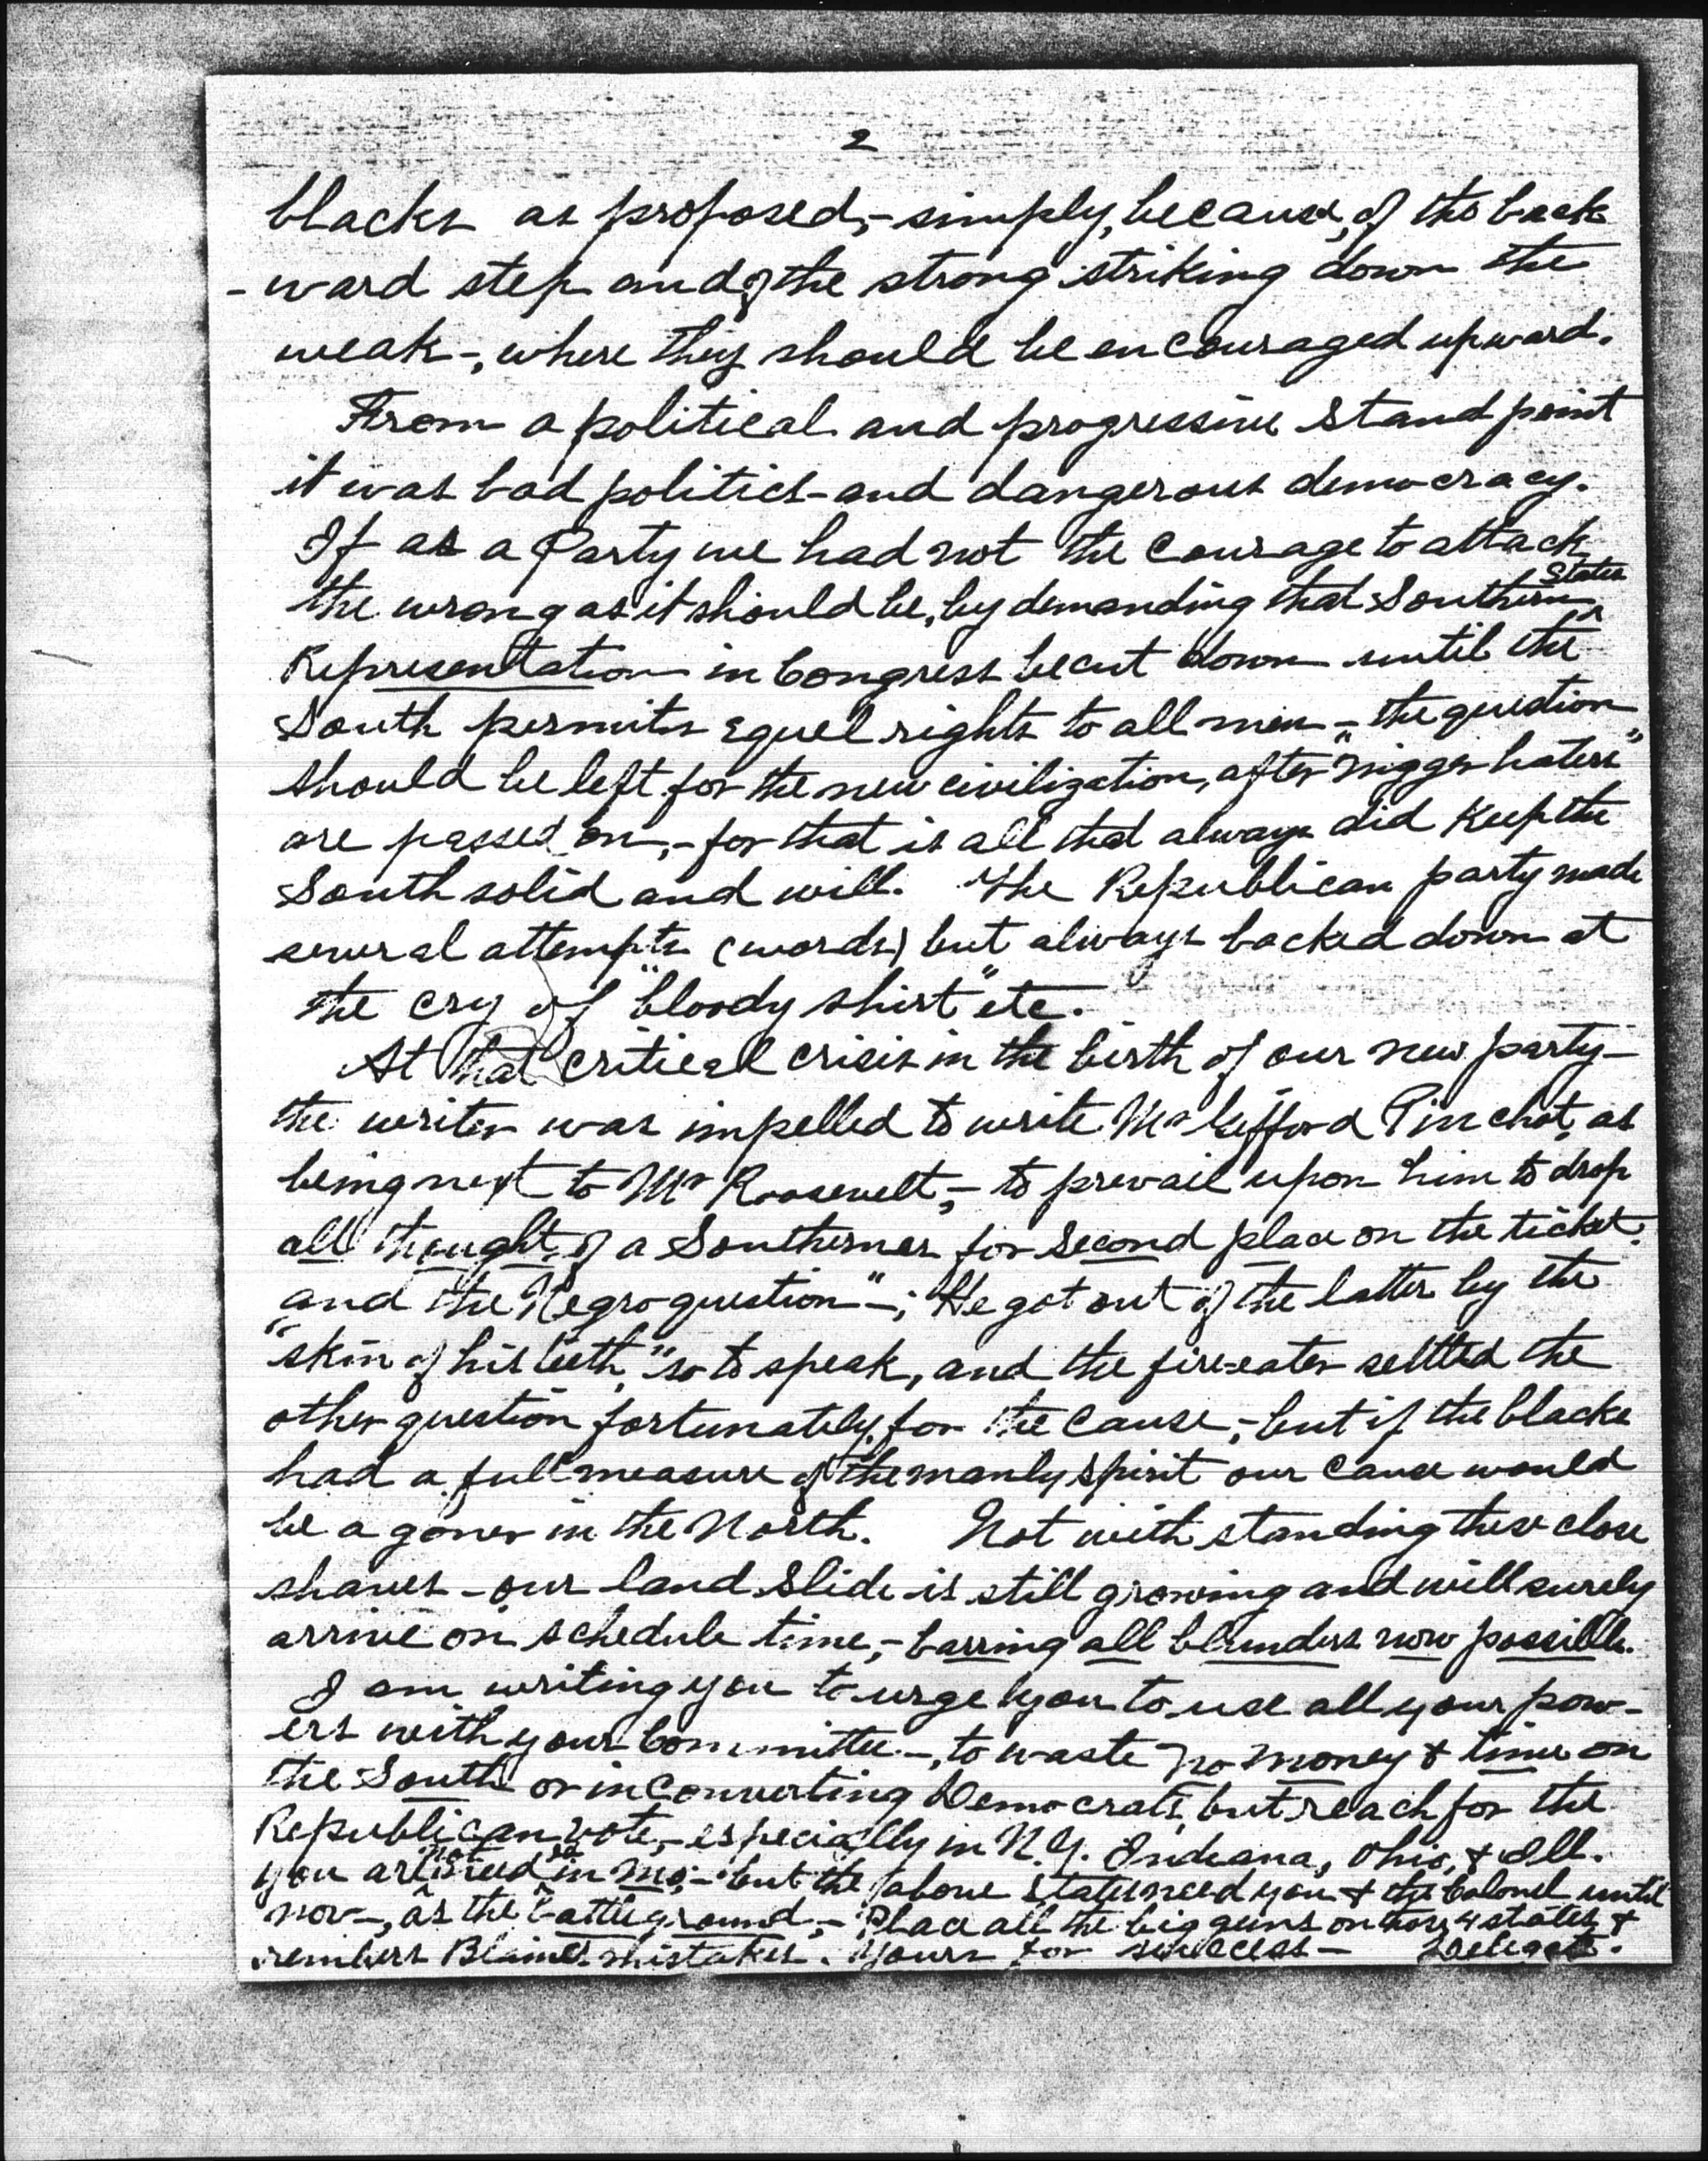 2
blacks as proposed,- simply, because, of the back
-ward step and of the strong striking down the
weak-, where they should be encouraged upward.
From a political and progressive stand point
it was bad politics- and dangerous democracy.
If as a Party we had not the courage to attack
the wrong as it should be, by demanding that Southern States
Representation in Congress be cut down until the
South permits equel rights to all men - the question
should be left for the new civilization, after "nigger haters"
are passed on,- for that is all that always did keep the
South solid and will. The Republican party made
several attempts (words) but always backed down at
the cry of "bloody shirt" etc.
At that critical crisis in the birth of our new party-
the writer was impelled to write Mr Gifford Pinchot, as
being next to Mr Roosevelt,- to prevail upon him to drop
all thought of a Southerner for second place on the ticket.
and the "Negro question"-; He got out of the latter by the
"skin of his teeth," so to speak, and the fire-eater settled the
other question fortunately, for the cause,- but if the blacks
had a full measure of the manly spirit our cause would
be a goner in the North. Not with standing these close
shaves - our land slide is still growing and will surely
arrive on schedule time,- barring all blunders now possible.
I am writing you to urge you to use all your pow-
ers with your Committee-, to waste no money & time on
the South or in converting Democrats, but reach for the
Republican vote,- especially in N.Y. Indiana, Ohio, & Ill.
you are not needed in Mo,- but the above states need you & the Colonel until
nov-, as the battle ground,- Place all the big guns on those 4 states &
rembers Blaines mistakes. Yours for success- Delegate.